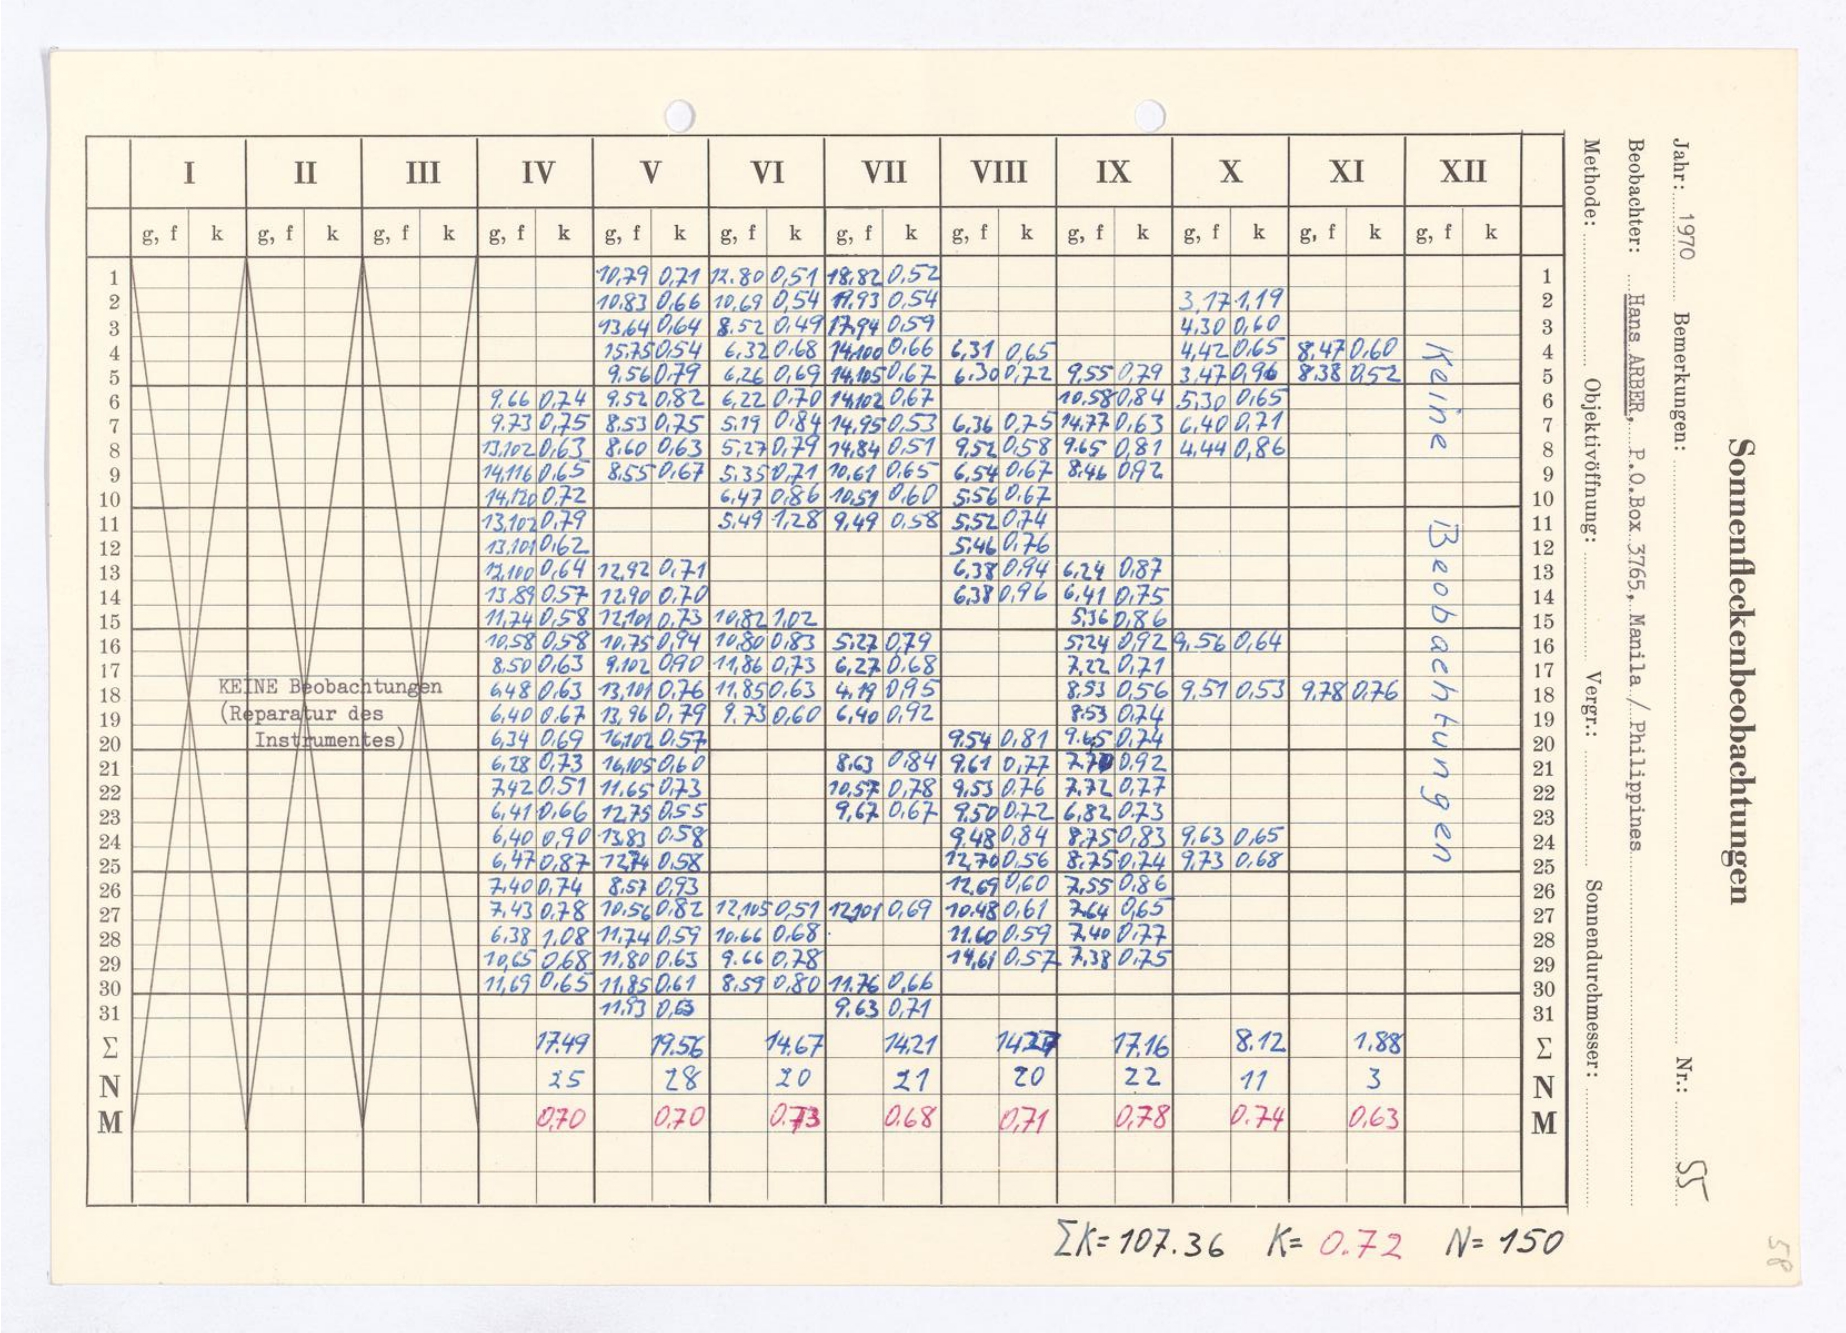 Sonnenfleckenbeobachtungen
Jahr: 1970 Bemerkungen: Nr.: 55
Beobachter: Hans ARBER, P.O.Box 3765, Manila / Philippines
Methode: Objektivöffnung: Vergr.: Sonnendurchmesser:
I II III IV V VI VII VIII IX X XI XII
g, f k g, f k g, f k g, f k g, f k g, f k g, f k g, f k g, f k g, f k g, f k g, f k
1 10,79 0,71 12.80 0,51 18,82 0,52 1
2 10,83 0,66 10,69 0,54 19,93 0,54 3,17 1,19 2
3 13,64 0,64 8.52 0,49 17,94 0,59 4,30 0,60 3
4 15,75 0,54 6,32 0,68 14,100 0,66 6,31 0,65 4,42 0,65 8,47 0,60 4
5 9.56 0,79 6,26 0,69 14,105 0,67 6.30 0,72 9,55 0,79 3,47 0,96 8.38 0,52 5
6 9.66 0,74 9,52 0,82 6,22 0,70 14,102 0,67 10,58 0,84 5,30 0,65 6
7 9.73 0,75 8,53 0,75 5.19 0.84 14,95 0,53 6,36 0,75 14,77 0,63 6,40 0,71 7
8 13,102 0,63 8,60 0,63 5,27 0,79 14,84 0,51 9,52 0,58 9.65 0,81 4,44 0,86 8
9 14,116 0,65 8,55 0,67 5,35 0,71 10,61 0,65 6,54 0,67 8,46 0,92 9
10 14,120 0,72 6,47 0,86 10,51 0,60 5,56 0,67 10
11 13,102 0,79 5,49 1,28 9,49 0,58 5,52 0,74 11
12 13,101 0,62 5,46 0,76 12
13 12,100 0,64 12,92 0,71 6,38 0,94 6,24 0,87 13
14 13,89 0,57 12,90 0,70 6,38 0,96 6,41 0,75 14
15 11,74 0,58 12,101 0,73 10,82 1,02 5,36 0,86 15
16 10,58 0,58 10,75 0,94 10,80 0,83 5,27 0,79 5,24 0,92 9,56 0,64 16
17 8.50 0,63 9,102 0,90 11,86 0,73 6,27 0.68 7,22 0,71 17
KEINE Beobachtungen
18 6,48 0,63 13,101 0,76 11,85 0,63 4,19 0,95 8,53 0,56 9,51 0,53 9,78 0,76 18
(Reparatur des
19 6,40 0,67 13,96 0,79 9.73 0,60 6,40 0,92 8.53 0,74 19
Instrumentes)
20 6,34 0,69 16,102 0,57 9,54 0,81 9.65 0,74 20
21 6,28 0,73 16,105 0,60 8,63 0,84 9,61 0,77 0,92 21
22 7,42 0,51 11.65 0,73 10,57 0,78 9,53 0,76 7,72 0,77 22
23 6,41 0,66 12,75 0,55 9,67 0,67 9,50 0,72 6,82 0,73 23
24 6,40 0,90 13,83 0.58 9,48 0,84 8,75 0,83 9,63 0,65 24
25 6,47 0,87 12,74 0,58 12,70 0,56 8,75 0,74 9,73 0,68 25
26 7,40 0,74 8,57 0,93 12,69 0,60 7,55 0,86 26
27 7,43 0,78 10,56 0,82 12,105 0,51 12,101 0,69 10,48 0,61 7,64 0,65 27
28 6,38 1,08 11,74 0,59 10,66 0,68 11.60 0,59 7,40 0,77 28
29 10,65 0,68 11,80 0.63 9.66 0,78 14,61 0,57 7,38 0,75 29
30 11,69 0,65 11,85 0,61 8,59 0,80 11.76 0,66 30
31 11,93 0,63 9,63 0,71 31
Keine Beobachtungen
Σ 17.49 19.56 14.67 14.21 14.27 17.16 8.12 1.88 Σ
N 25 28 20 21 20 22 11 3 N
M 0,70 0,70 0.73 0.68 0,71 0,78 0.74 0,63 M
ΣK= 107.36 K= 0.72 N= 150
58